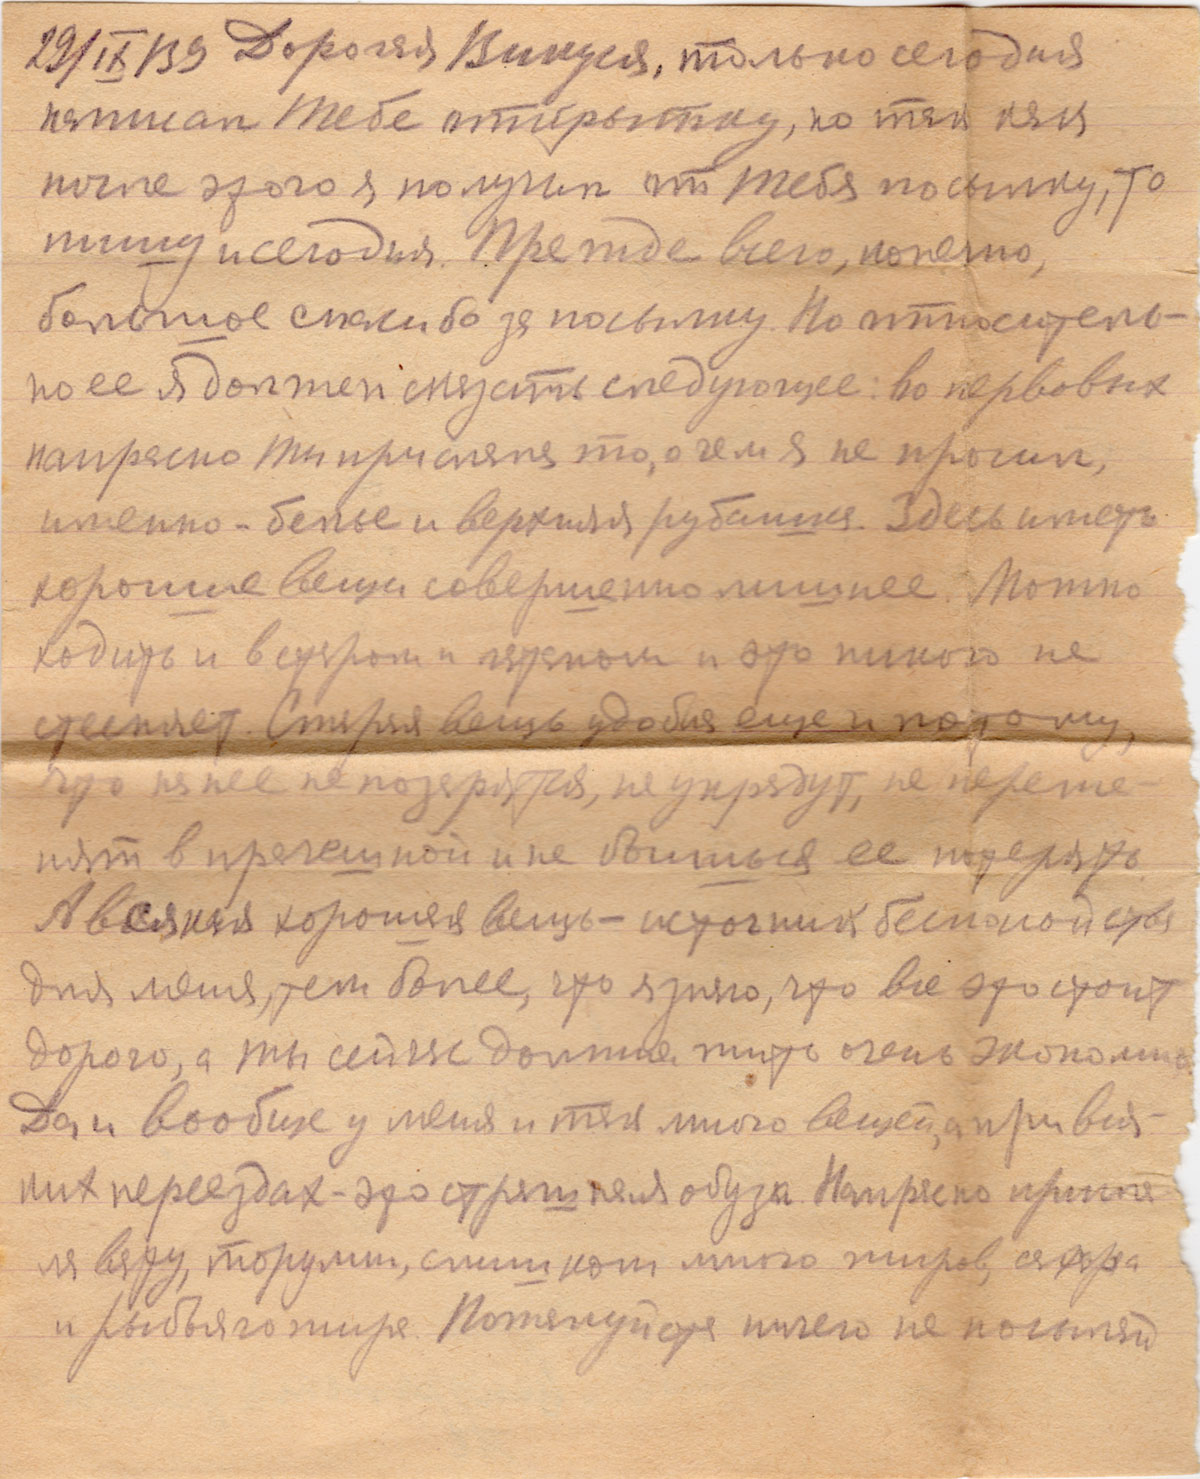 29/IX/39 Дорогая Викуся, только сегодня
написал Тебе открытку, но так как
после этого я получил от Тебя посылку, то
пишу и сегодня. Прежде всего, конечно,
большое спасибо за посылку. Но относитель-
но ее я должен сказать следующее: во первовых
напрасно Ты прислала то, о чем я не просил,
именно - белье и верхняя рубашка. Здесь иметь
хорошие вещи совершенно лишнее. Можно
ходить и в старом и латаном и это никого не
стесняет. Старая вещь удобна еще и потому,
что на нее не позарятся, не украдут, не переме-
нят в прачешной и не боишься ее потерять.
А всякая хорошая вещь - источник беспокойства
для меня, тем более, что я знаю, что все это стоит
дорого, а Ты сейчас должна жить очень экономно.
Да и вообще у меня и так много вещей, а при вся-
ких переездах - это страшная обуза. Напрасно присла
ла вазу, слишком много жиров, сахара
и рыбьяго жира. Пожалуйста ничего не посылай